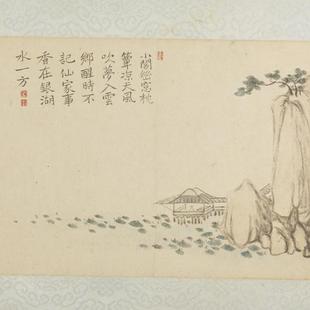 小閣窓枕
簟涼天風
吹夢入雲
鄉醒時不
記仙家事
香在銀湖
水一方